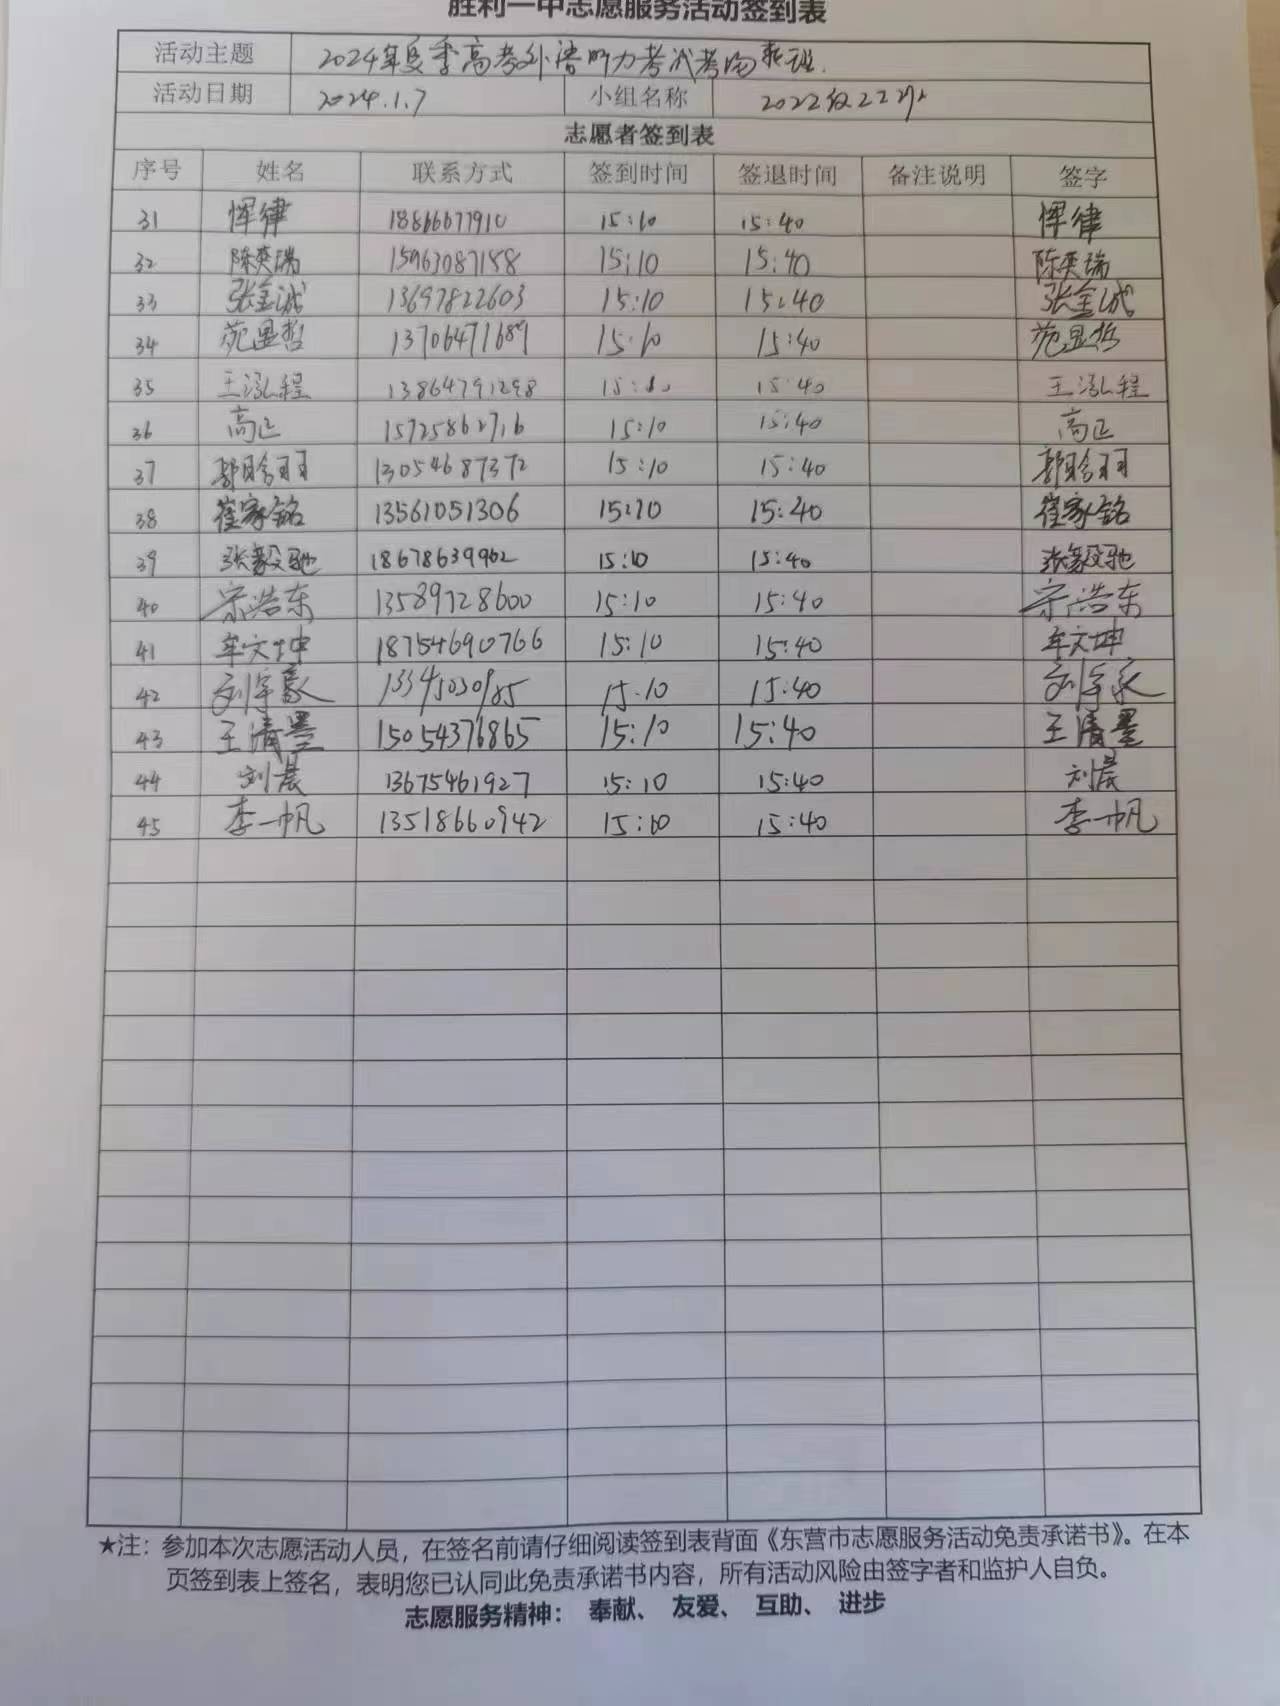 胜利一中志愿服务活动签到表
活动主题 2024年夏季高考外语听力考试考场
活动日期 2024.1.7 小组名称 2022级22班
志愿者签到表
序号 姓名 联系方式 签到时间 签退时间 备注说明 签字
31 恽律 18866677910 15:10 15:40 恽律
32 陈奕瑞 15963087158 15:10 15:40 陈奕瑞
33 张金诚 13697822603 15:10 15:40 张金诚
34 苑显哲 13706471689 15:10 15:40 苑显哲
35 王泓程 13864791298 15:10 15:40 王泓程
36 高正 15725862716 15:10 15:40 高正
37 郭晗羽 13054687372 15:10 15:40 郭晗羽
38 崔家铭 13561051306 15:10 15:40 崔家铭
39 张毅驰 18678639902 15:10 15:40 张毅驰
40 宋浩东 13589728600 15:10 15:40 宋浩东
41 牟文坤 18754690766 15:10 15:40 牟文坤
42 刘宇豪 15:10 15:40
43 王清墨 15054376865 15:10 15:40 王清墨
44 刘晨 13675461927 15:10 15:40 刘晨
45 李一帆 13518660942 15:10 15:40 李一帆
★注：参加本次志愿活动人员，在签名前请仔细阅读签到表背面《东营市志愿服务活动免责承诺书》。在本
页签到表上签名，表明您已认同此免责承诺书内容，所有活动风险由签字者和监护人自负。
志愿服务精神： 奉献、 友爱、 互助、 进步